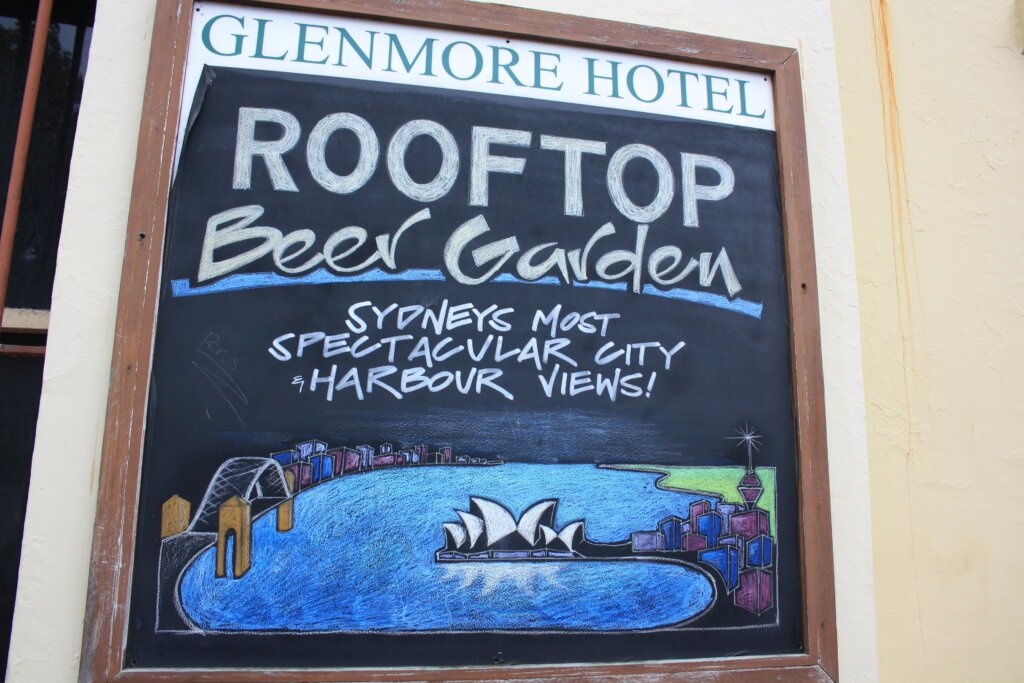 GLENMORE HOTEL
ROOFTOP
Beer Garden
SYDNEYS MOST
SPECTACULAR CITY
& HARBOUR VIEWS!